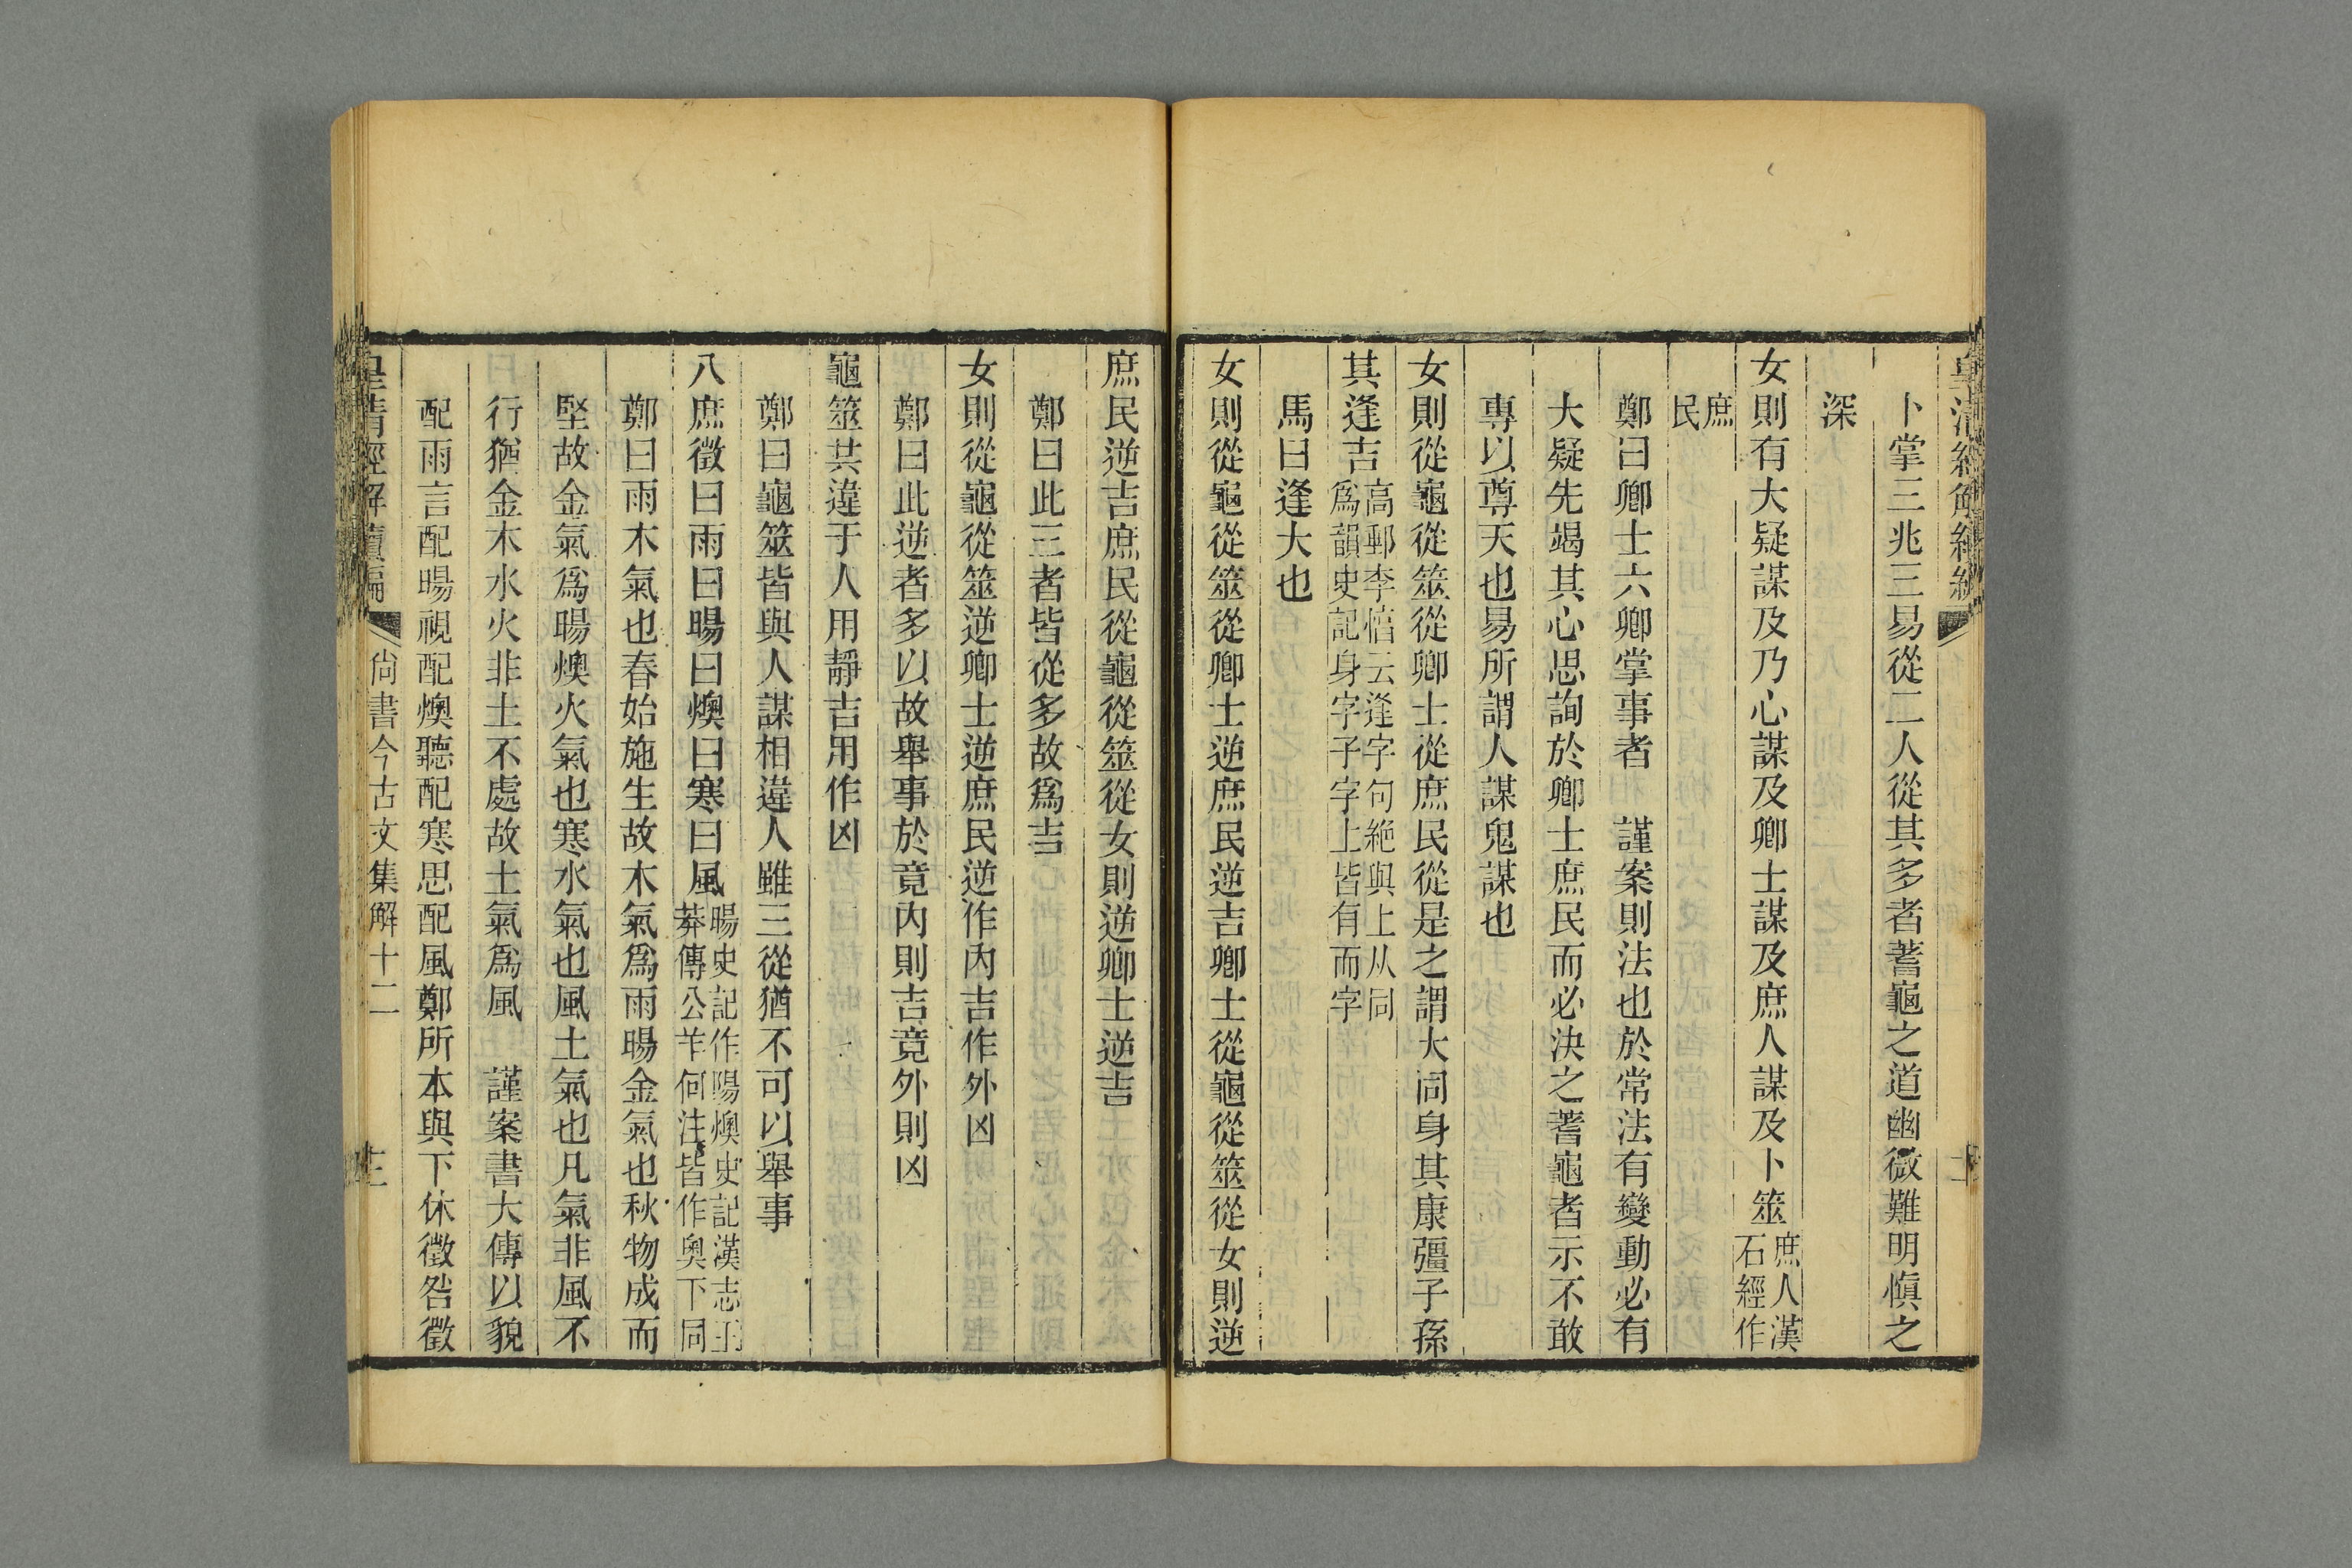 卜掌三兆三易從二人從其多者蓍龜之道幽微難明愼之
深
女則有大疑謀及乃心謀及卿士謀及庶人謀及卜筮庶人漢石經作
庶民
鄭曰卿士六卿掌事者　謹案則法也於常法有變動必有
大疑先竭其心思詢於卿士庶民而必決之蓍龜者示不敢
專以尊天也易所謂人謀鬼謀也
女則從龜從筮從卿士從庶民從是之謂大同身其康彊子孫
其逢吉高郵李惇云逢字句絶與上从同爲韻史記身字子字上皆有而字
馬曰逢大也
女則從龜從筮從卿士逆庶民逆吉卿士從龜從筮從女則逆
庶民逆吉庶民從龜從筮從女則逆卿士逆吉
鄭曰此三者皆從多故爲吉
女則從龜從筮逆卿士逆庶民逆作內吉作外凶
鄭曰此逆者多以故舉事於竟內則吉竟外則凶
龜筮共違于人用靜吉用作凶
鄭曰龜筮皆與人謀相違人雖三從猶不可以舉事
八庶徵曰雨曰暘曰燠曰寒曰風暘史記作陽燠史記漢志王莽傳公羊何注皆作奧下同
鄭曰雨木氣也春始施生故木氣爲雨暘金氣也秋物成而
堅故金氣爲暘燠火氣也寒水氣也風土氣也凡氣非風不
行猶金木水火非土不處故土氣爲風　謹案書大傳以貌
配雨言配暘視配燠聽配寒思配風鄭所本與下休徵咎徵
皇清經解續編　尙書今古文集解十二